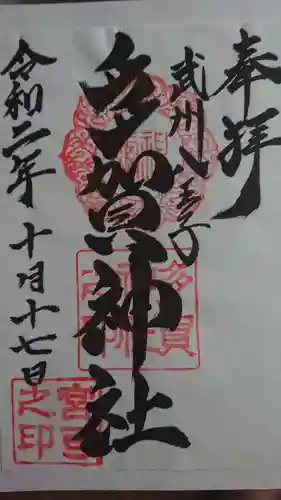 奉拝
武州八王子
多賀神社
令和二年十月十七日
多賀神社之印
宮司之印